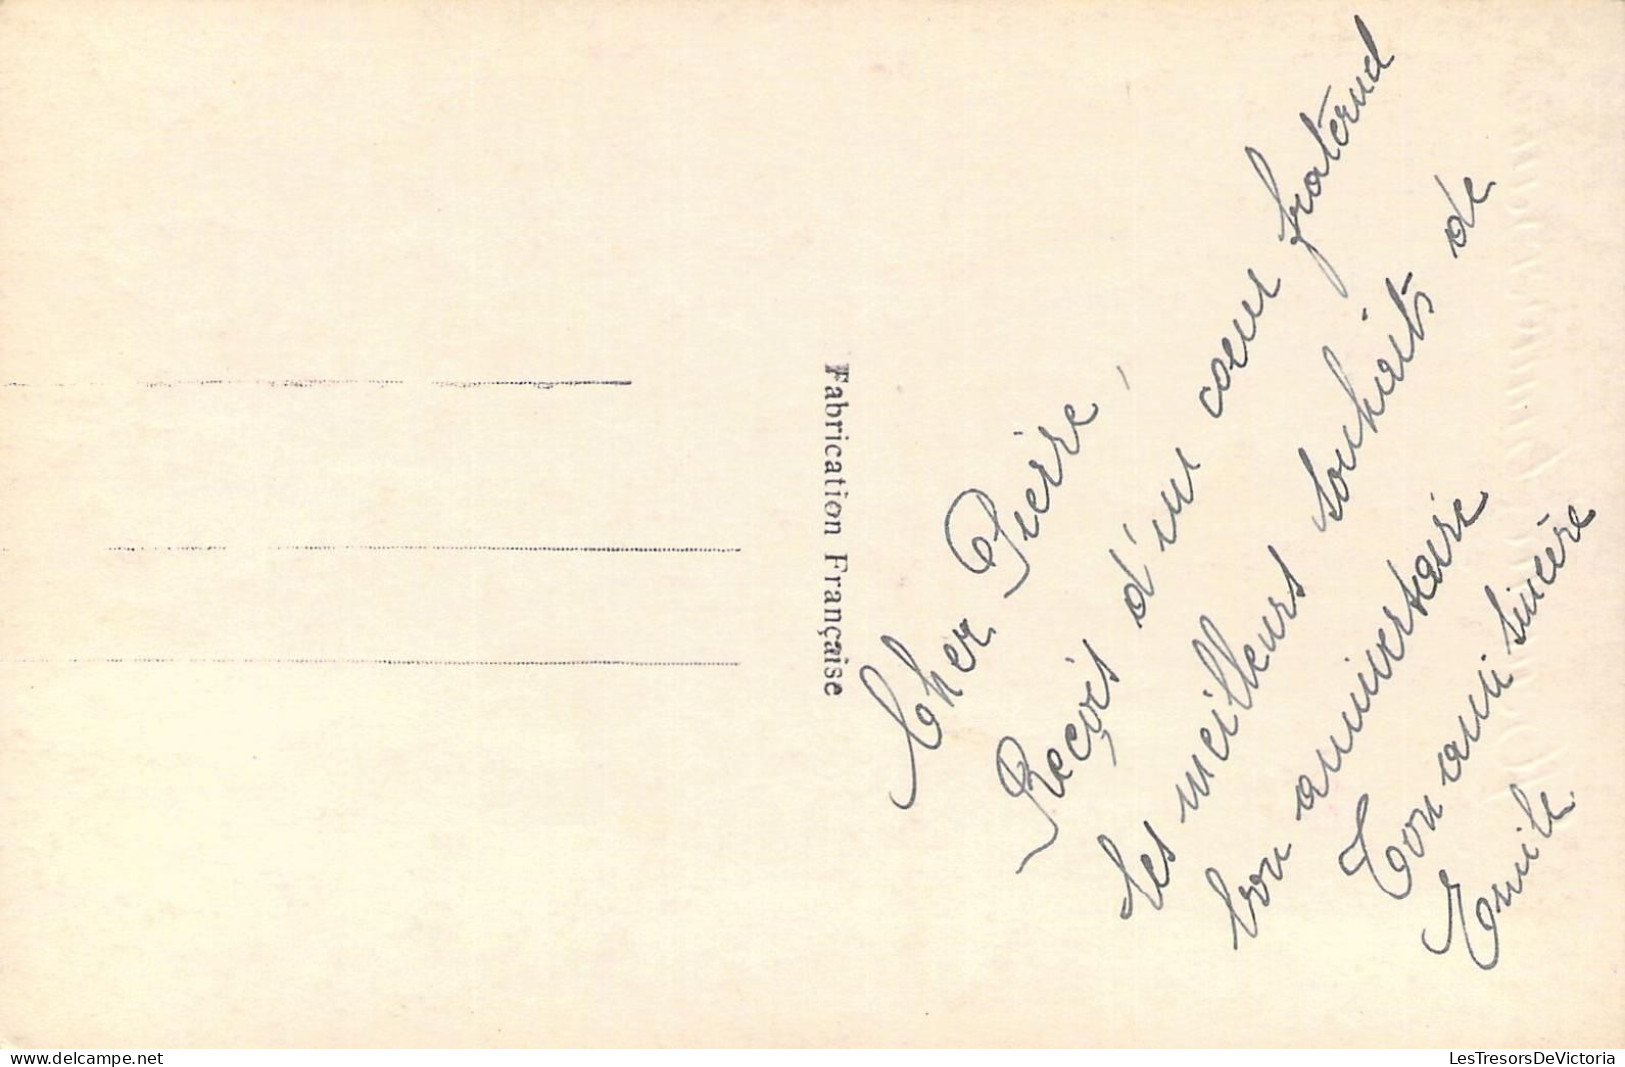 Fabrication Française
Cher Pierre,
Reçois d'un cœur fraternel
les meilleurs souhaits de
bon anniversaire
Ton ami sincère
Emile
www.delcampe.net
LesTresorsDeVictoria